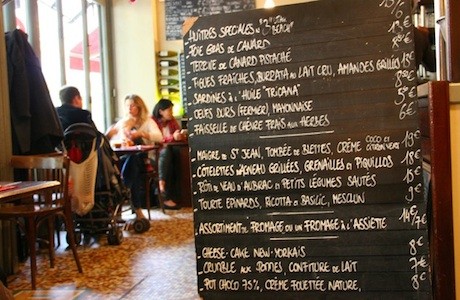 HUÎTRES SPÉCIALES "BEACH" 15€
FOIE GRAS DE CANARD
TERRINE DE CANARD PISTACHÉ
FIGUES FRAÎCHES, BURRATA AU LAIT CRU, AMANDES GRILLÉES
SARDINES À L'HUILE "TRICANA"
OEUFS DURS (FERMIER) MAYONNAISE
FAISSELLE DE CHÈVRE FRAIS AUX HERBES 6€
MAIGRE DE ST JEAN, TOMBÉE DE BLETTES, CRÈME COCO ET CITRON VERT 19€
CÔTELETTES D'AGNEAU GRILLÉES, GRENAILLES ET PIQUILLOS 18€
RÔTI DE VEAU D'AUBRAC ET PETITS LÉGUMES SAUTÉS
TOURTE ÉPINARDS, RICOTTA & BASILIC, MESCLUN
ASSORTIMENT DE FROMAGE OU UN FROMAGE À L'ASSIETTE 14€/7€
CHEESE-CAKE NEW-YORKAIS 8€
CRUMBLE AUX POMMES, CONFITURE DE LAIT 7€
POT CHOCO 75%, CRÈME FOUETTÉE NATURE, 8€